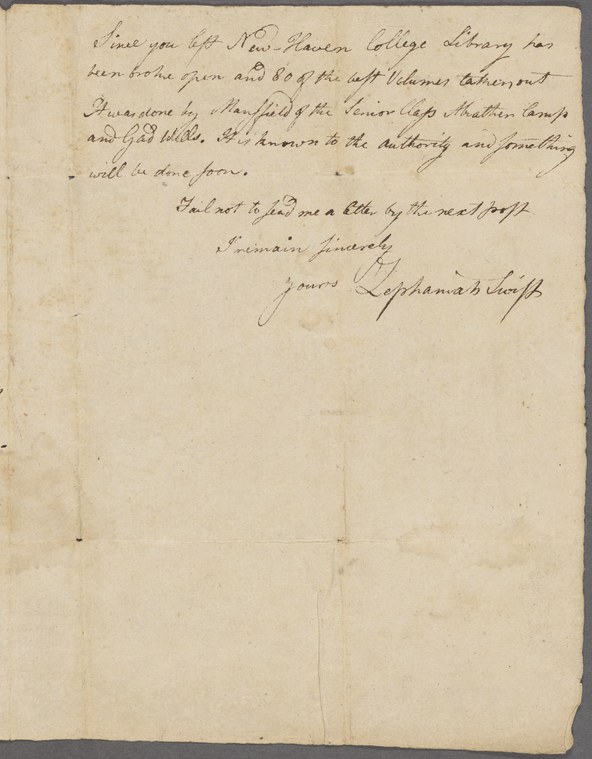 Since you left New-Haven College Library has
been broke open and 80 of the best Volumes taken out
It was done by Mansfield of the Senior Class Mather Camp
and Gad Wells. It is known to the authority and something
will be done soon.
Fail not to send me a letter by the next post
I remain sincerely
yours Zephaniah Swift